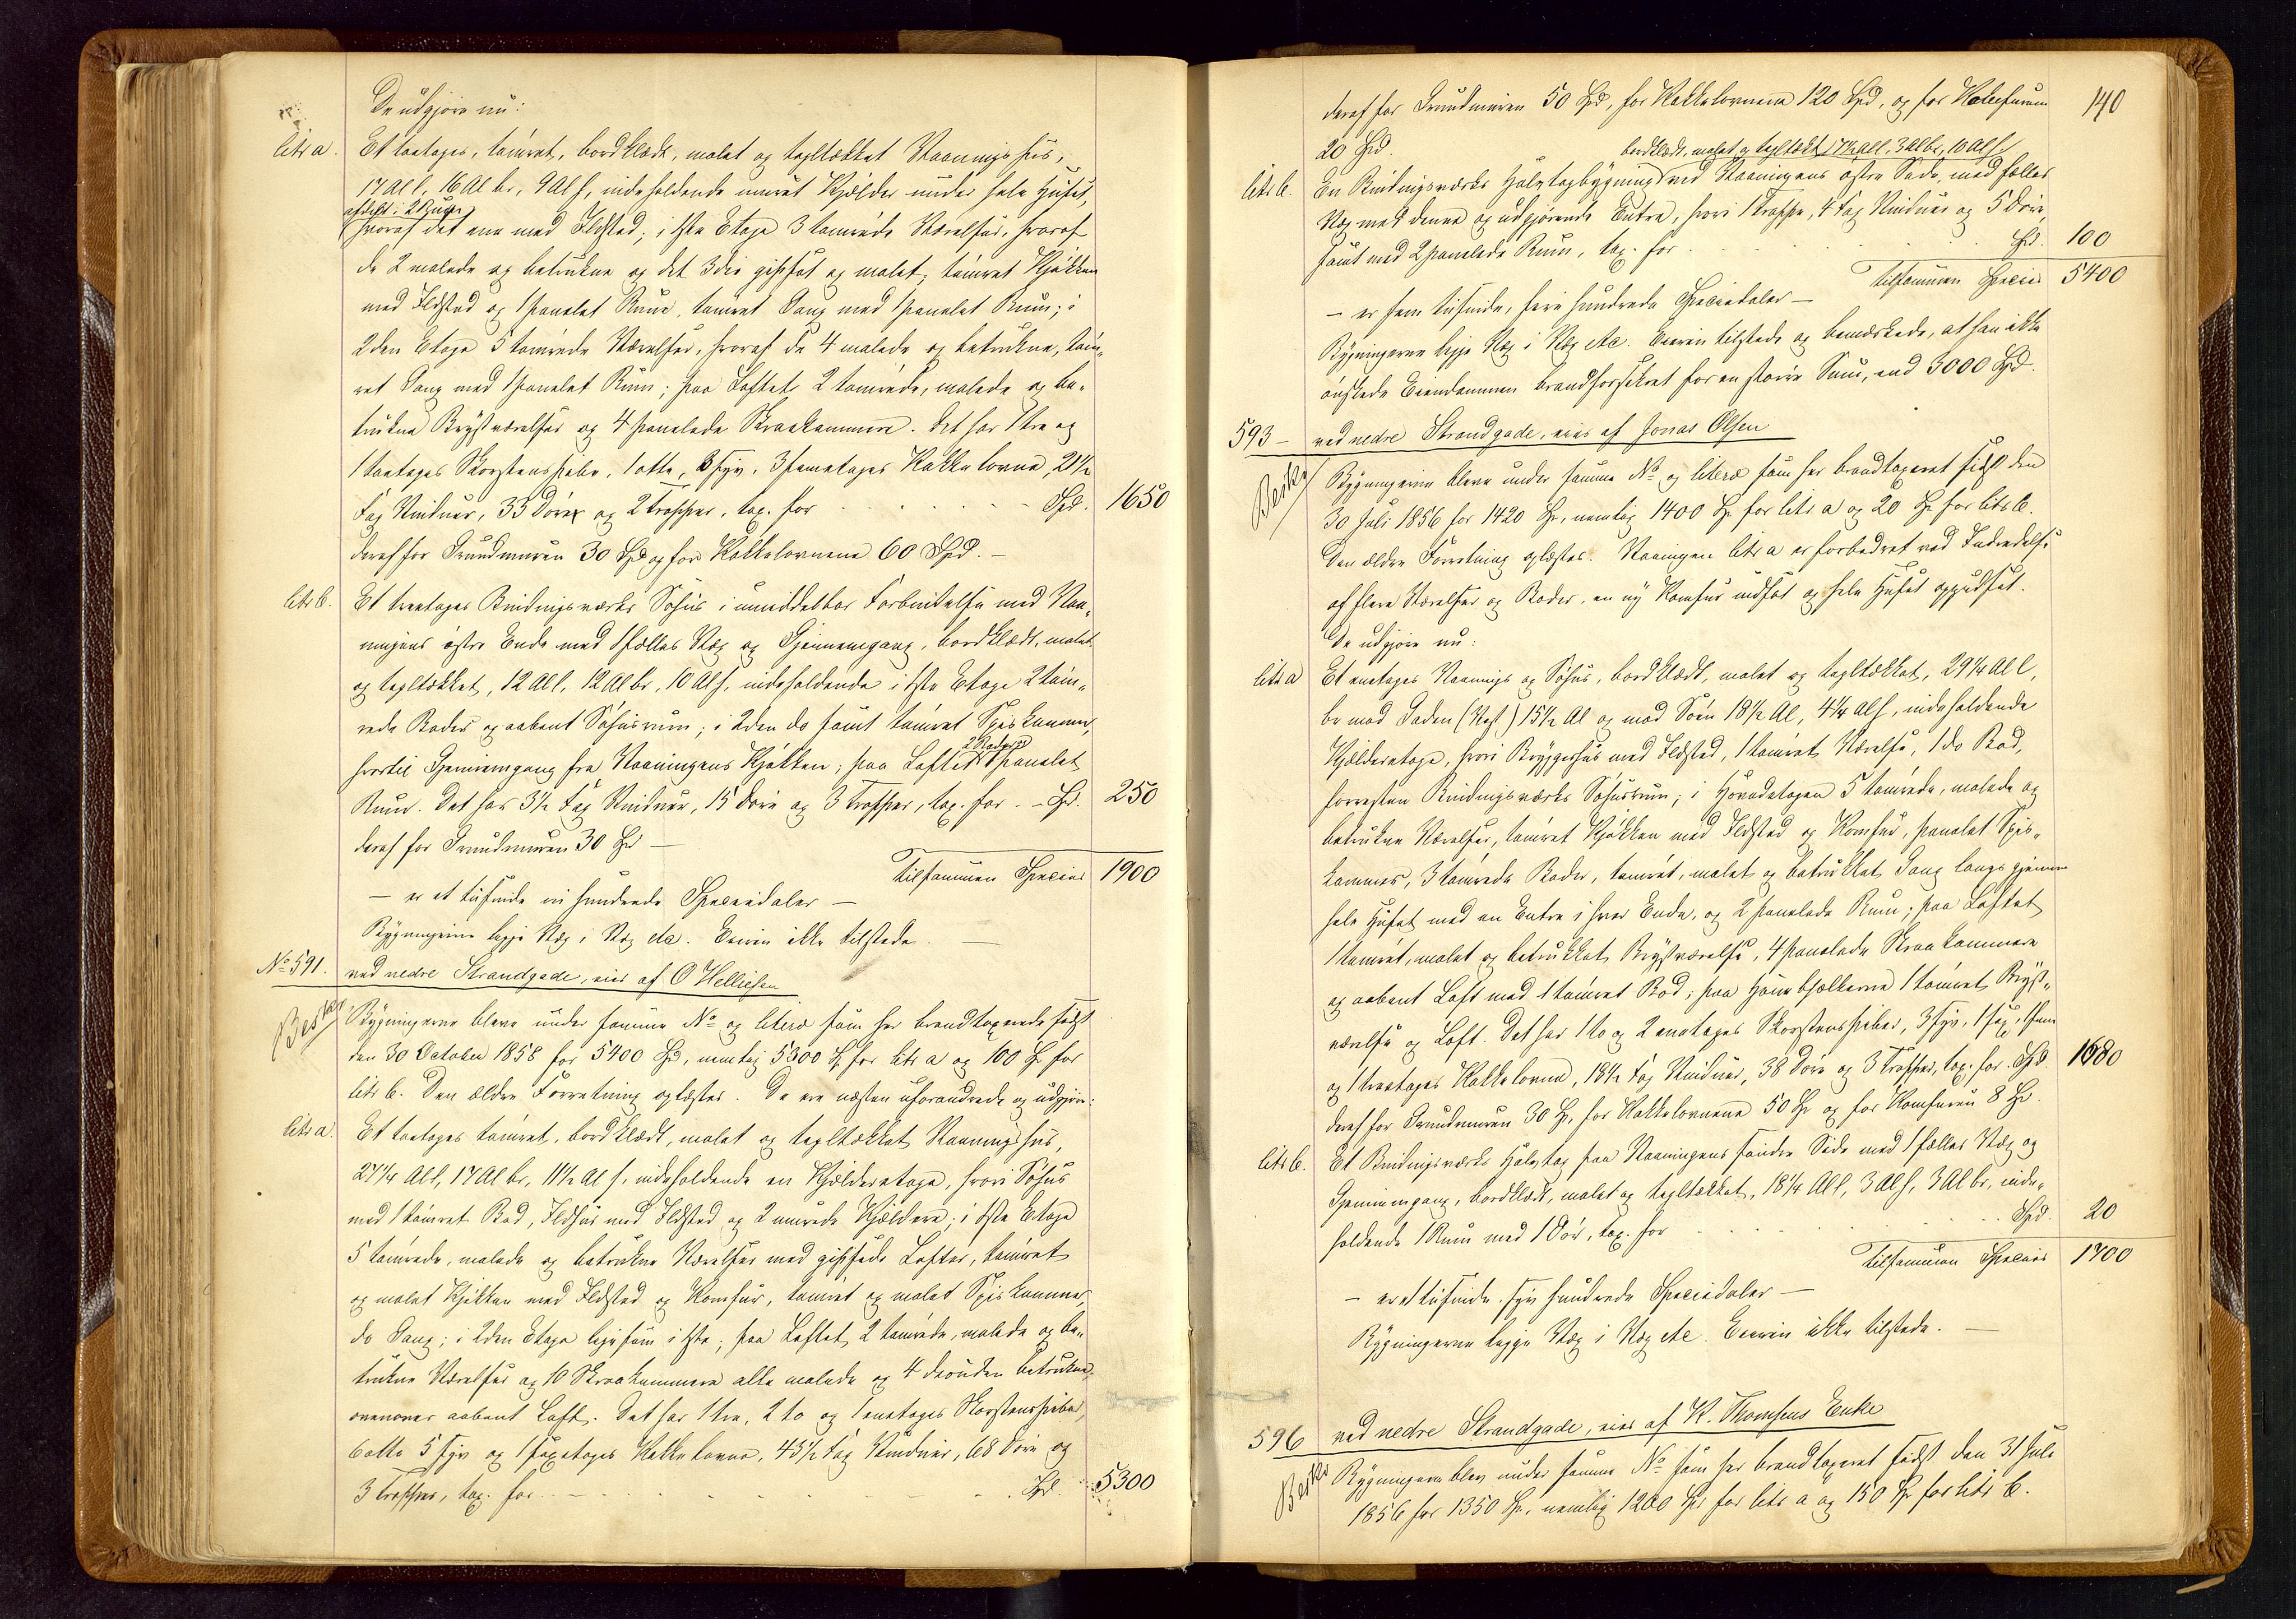 De udgjøre nu:
litr a. Et toetages, tømret, bordklædt, malet og tegltækket Vaaningshus,
17 Al l. 16 Al br. 9 Al h, indeholdende muret Kjælder under hele Huset,
afdelt i 2 Rum,
hvoraf det ene med Ildsted; i 1ste Etage 3 tømrede Værelser, hvoraf
de 2 malede og betrukne og det 3die gipset og malet, tømret Kjøkken
med Ildsted og 1 panelet Rum, tømret Gang med 1 panelet Rum; i
2den Etage 5 tømrede Værelser, hvoraf de 4 malede og betrukne, tøm-
ret Gang med 1 panelet Rum; paa Loftet 2 tømrede, malede og be-
trukne Brystværelser og 4 panelede Skraakammere. Det har 1 tre og
1 toetages Skorstenspibe, 1 otte, 3 syv, 3 femetages Kakkelovne, 21½
Fag Vinduer, 33 Døre og 2 Trapper, tax. for Spd. 1650
deraf for Grundmuren 30 Spd og for Kakkelovnene 60 Spd. –
litr b. Et treetages Bindingsværks Søhus i umiddelbar Forbindelse med Vaa-
ningens østre Ende med 1 fælles Væg og Gjennemgang, bordklædt, malet
og tegltækket, 12 Al l. 12 Al br. 10 Al h. indeholdende i 1ste Etage 2 tøm-
rede Boder og aabent Søhusrum; i 2den do samt tømret Spiskammer,
hvortil Gjennemgang fra Vaaningens Kjøkken; paa Loftet 2 Boder og 1 panelet
Rum. Det har 3½ Fag Vinduer, 15 Døre og 3 Trapper, tax. for – Spd. 250
deraf for Grundmuren 30 Spd –
Tilsammen Specier 1900
– er et tusinde ni hundrede Speciedaler –
Bygningerne ligge Væg i Væg etc. Eieren ikke tilstede. –
No 591. ved nedre Strandgade, eies af O Helliesen
Beskr Bygningerne bleve under samme No og litera som her brandtaxerede sidst
den 30 October 1858 for 5400 Spd, nemlig 5300 Sp for litr a og 100 Sp for
litr b. Den ældre Forretning oplæstes. De ere næsten uforandrede og udgjøre:
litr a. Et toetages tømret, bordklædt, malet og tegltækket Vaaningshus,
27¼ Al l, 17 Al br, 11½ Al h, indeholdende en Kjælderetage, hvori Søhus
med 1 tømret Bod, Ildhus med Ildsted og 2 murede Kjældere; i 1ste Etage
5 tømrede, malede og betrukne Værelser med gipsede Lofter, tømret
og malet Kjøkken med Ildsted og Komfur, tømret og malet Spiskammer,
do Gang; i 2den Etage ligesom i 1ste; paa Loftet 2 tømrede, malede og be-
trukne Værelser og 10 Skraakammere alle malede og 4 desuden betrukne,
ovenover aabent Loft. Det har 1 tre, 2 to og 1 enetages Skorstenspibe,
6 otte 5 syv og 1 sexetages Kakkelovne, 43½ Fag Vinduer, 68 Døre og
3 Trapper, tax. for Spd. 5300
deraf for Grundmuren 50 Spd, for Kakkelovnene 120 Spd, og for Komfuren 140
20 Spd.
bordklædt, malet og tegltækket, 7½ Al l. 3 Al br, 10 Al h
litr b. En Bindingsværks Halvtagbygning ved Vaaningens østre Side, med fælles
Væg med denne og udgjørende Entre, hvori 1 Trappe, 4 Fag Vinduer og 5 Døre,
samt med 2 panelede Rum, tax. for Spd. 100
Tilsammen Specier 5400
– er fem tusinde, fire hundrede Speciedaler –
Bygningerne ligge Væg i Væg etc. Eieren tilstede og bemærkede, at han ikke
ønskede Eiendommen brandforsikret for en større Sum, end 3000 Spd.
593 – ved nedre Strandgade, eies af Jonas Olsen
Beskr Bygningerne bleve under samme No og litera som her brandtaxeret sidst den
30 Juli 1856 for 1420 Sp, nemlig 1400 Sp for litr a og 20 Sp for litr b.
Den ældre Forretning oplæstes. Vaaningen litr a er forbedret ved Indredelse
af flere Værelser og Boder, en ny Komfur indsat og hele Huset oppudset.
De udgjøre nu:
litr a Et enetages Vaanings og Søhus, bordklædt, malet og tegltækket, 29¼ Al l,
br mod Gaden (Vest) 15½ Al og mod Søen 18½ Al, 4¼ Al h, indeholdende
Kjælderetage, hvori Bryggerhus med Ildsted, 1 tømret Værelse, 1 do Bod,
forresten Bindingsværks Søhusrum; i Hovedetagen 5 tømrede, malede og
betrukne Værelser, tømret Kjøkken med Ildsted og Komfur, panelet Spis-
kammer, 3 tømrede Boder, tømret, malet og betrukket Gang langs gjennem
hele Huset med en Entre i hver Ende, og 2 panelede Rum; paa Loftet
1 tømret, malet og betrukket Brystværelse, 4 panelede Skraakammere
og aabent Loft med 1 tømret Bod; paa Hanebjelkerne 1 tømret Bryst-
værelse og Loft. Det har 1 to og 2 enetages Skorstenspiber, 3 syv, 1 sex, 1 fem
og 1 treetages Kakkelovne, 18½ Fag Vinduer, 38 Døre og 3 Trapper, tax. for Spd. 1680
deraf for Grundmuren 30 Sp, for Kakkelovnene 50 Sp og for Komfuren 8 Sp.
litr b. Et Bindingsværks Halvtag paa Vaaningens søndre Side med 1 fælles Væg og
Gjennemgang, bordklædt, malet og tegltækket, 18¼ Al l, 3 Al h, 3 Al br, inde-
holdende 1 Rum med 1 Dør, tax. for Spd. 20
Tilsammen Specier 1700
– er et tusinde syv hundrede Speciedaler –
Bygningerne ligge Væg i Væg etc. Eieren ikke tilstede. –
596 ved nedre Strandgade, eies af K. Thomsens Enke
Beskr Bygningerne blev under samme No som her brandtaxeret sidst den 31 Juli
1856 for 1350 Sp, nemlig 1200 Sp for litr a og 150 Sp for litr b.